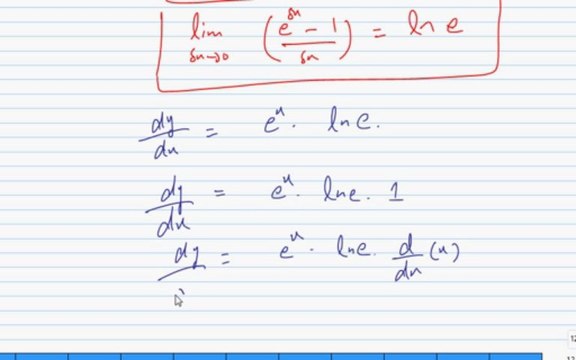 lim δx→0 ( (e^δx − 1) / δx ) = ln e
dy/dx = e^x . ln e.
dy/dx = e^x . ln e . 1
dy/ = e^x . ln e . d/dx (x)